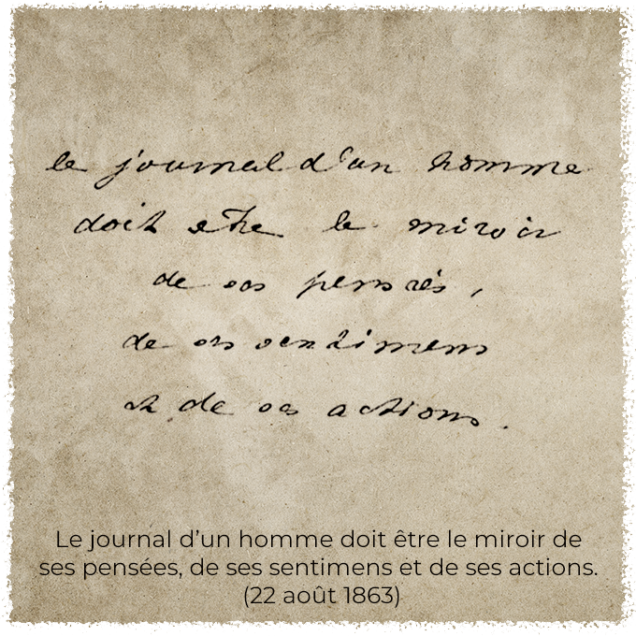 le journal d'un homme
doit être le miroir
de ses pensées,
de ses sentimens
et de ses actions.
Le journal d’un homme doit être le miroir de
ses pensées, de ses sentimens et de ses actions.
(22 août 1863)